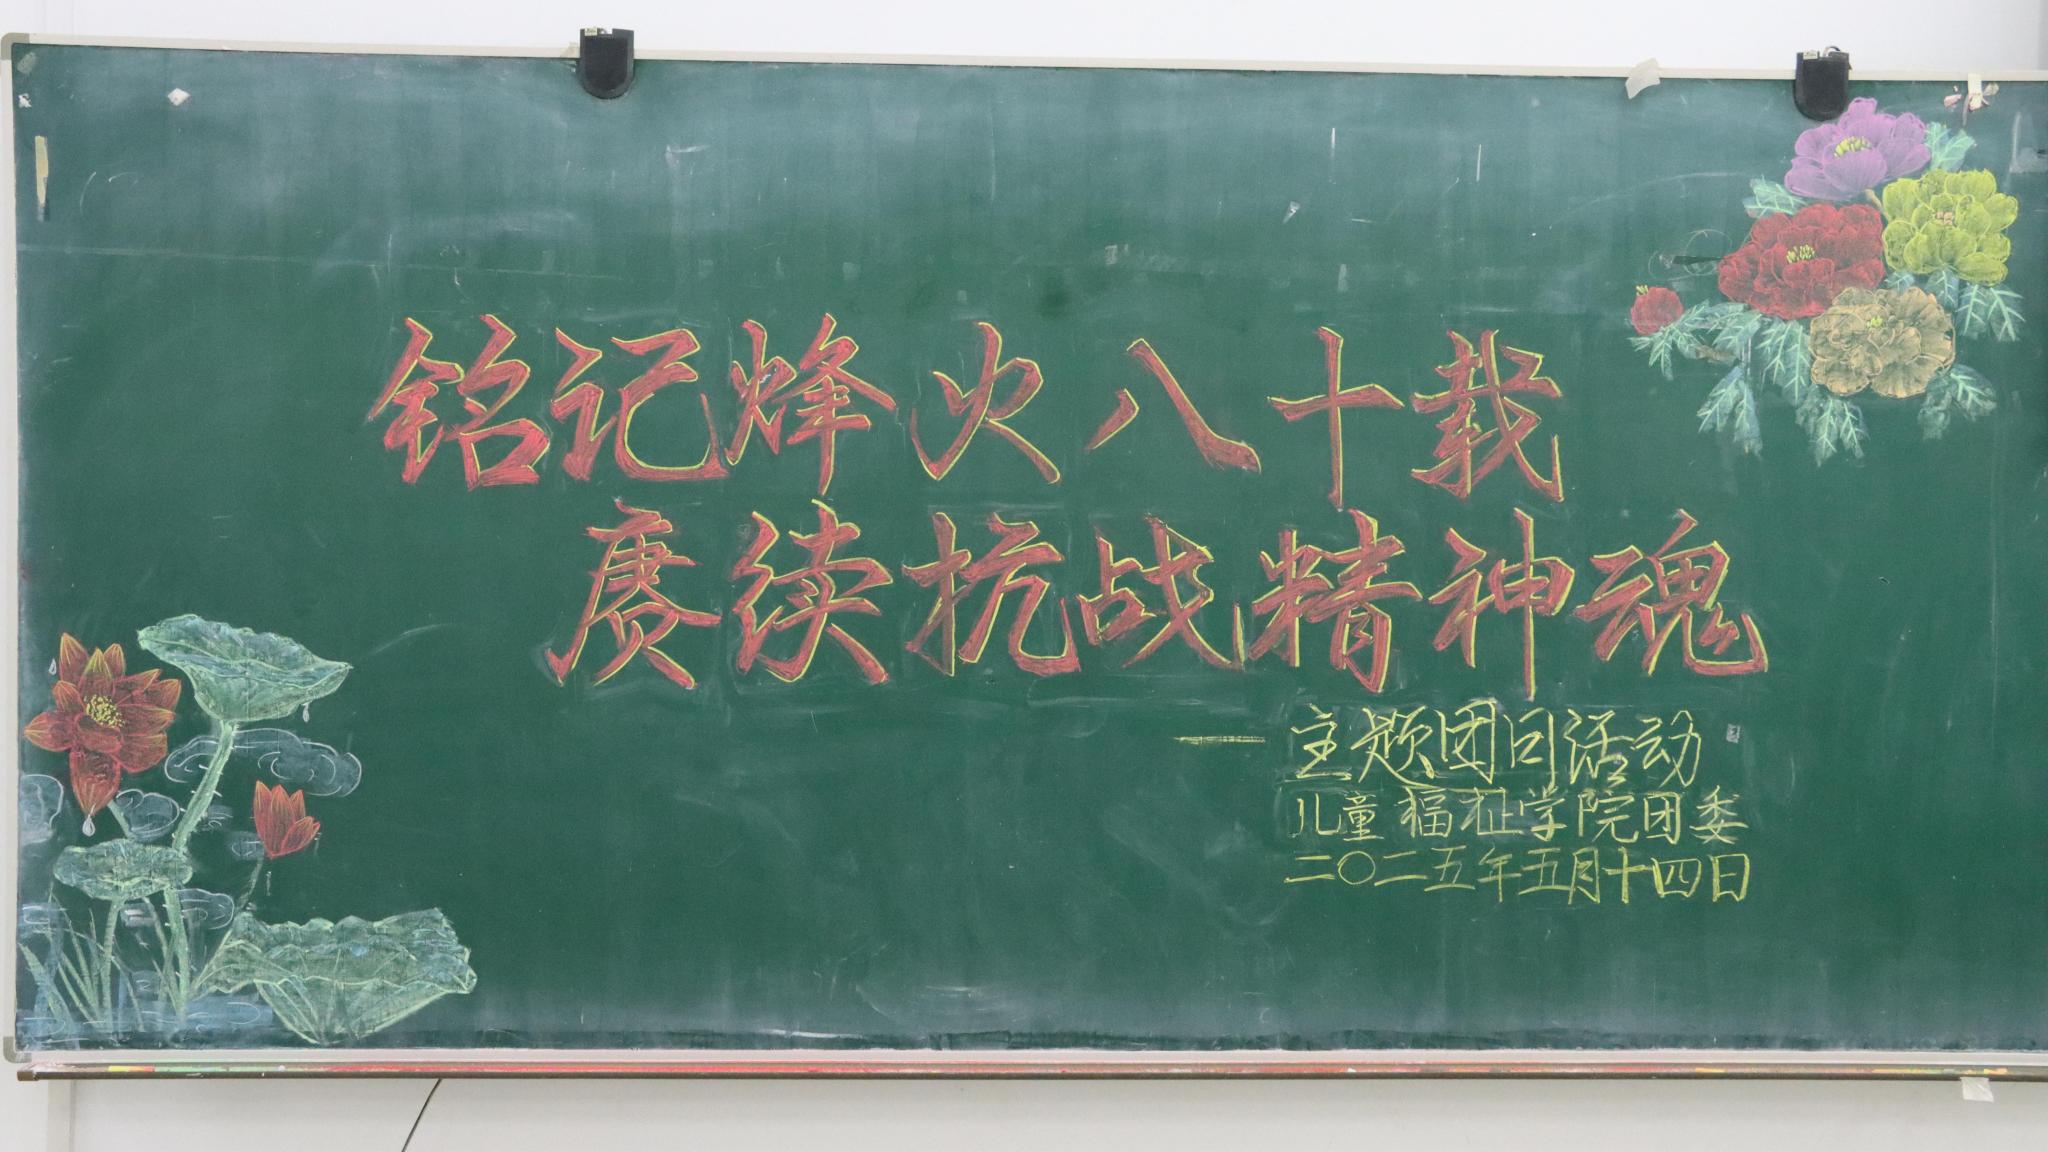 铭记烽火八十载
赓续抗战精神魂
——主题团日活动
儿童福祉学院团委
二〇二五年五月十四日